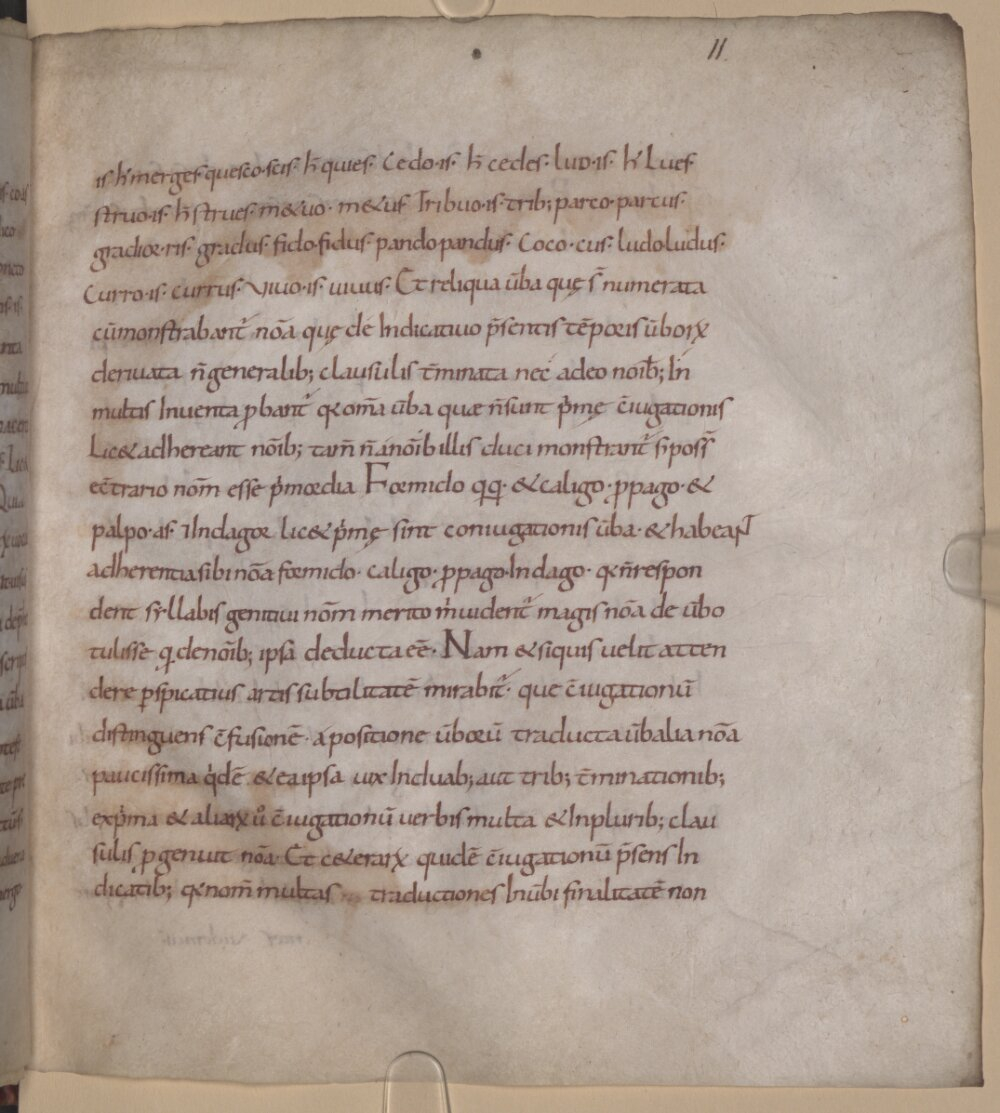 11
is· h̄ merges· quesco·scis· h̄ quies· Cedo·is· h̄ cedes· luo·is· h̄ Lues
struo·is· h̄ strues· m&uo· m&us· Tribuo·is· trib; parco· parcus·
gradior·ris· gradus· fido·fidus· pando pandus· Coco·cus· ludo ludus·
Curro·is· currus· Viuo·is· uiuus· Et reliqua ūba quę s̄ numerata
cū monstrabant᷑ nōa quę de Indicatiuo p̄sentis tēporis ūborꝝ
deriuata n̄ generalib; clausulis t̄minata nec adeo noīb; In
multis Inuenta ꝓbant᷑ ꝙ om̄a ūba quæ n̄ sunt p̄mę c̄iugationis
Lic& adhereant nōib; tam̄ n̄ a nōib illis duci monstrant᷑ s; poss̄
ec̄trario nom̄ esse p̄mordia Formido qꝗ· & caligo· ꝓpago· &
palpo·as· Indagor lic& p̄mę sint coniugationis ūba· & habeant
adherentia sibi nōa formido· caligo· ꝓpago· Indago· ꝙ n̄ respon
dent syllabis genitiui nom̄ merito m̄ uident᷑ magis nōa de ūbo
tulisse q̄ de noīb; ipsa deducta eē· Nam & siquis uelit atten
dere ꝑspicatius artis subtilitatē mirabit᷑· que c̄iugationū
distinguens c̄fusionē· a positione ūborū traducta ūbalia nōa
paucissima q̇dē & ea ipsa uix In duab; aut trib; t̄minationib;
exp̄ma & aliarꝝ u̇ c̄iugationū uerbis multa & In plurib; clau
sulis ꝓgenuit nōa Et c&erarꝝ quidē c̄iugationū p̄sens In
dicatib; ꝙ nom̄ multas traductiones In ūbi finalitatē non